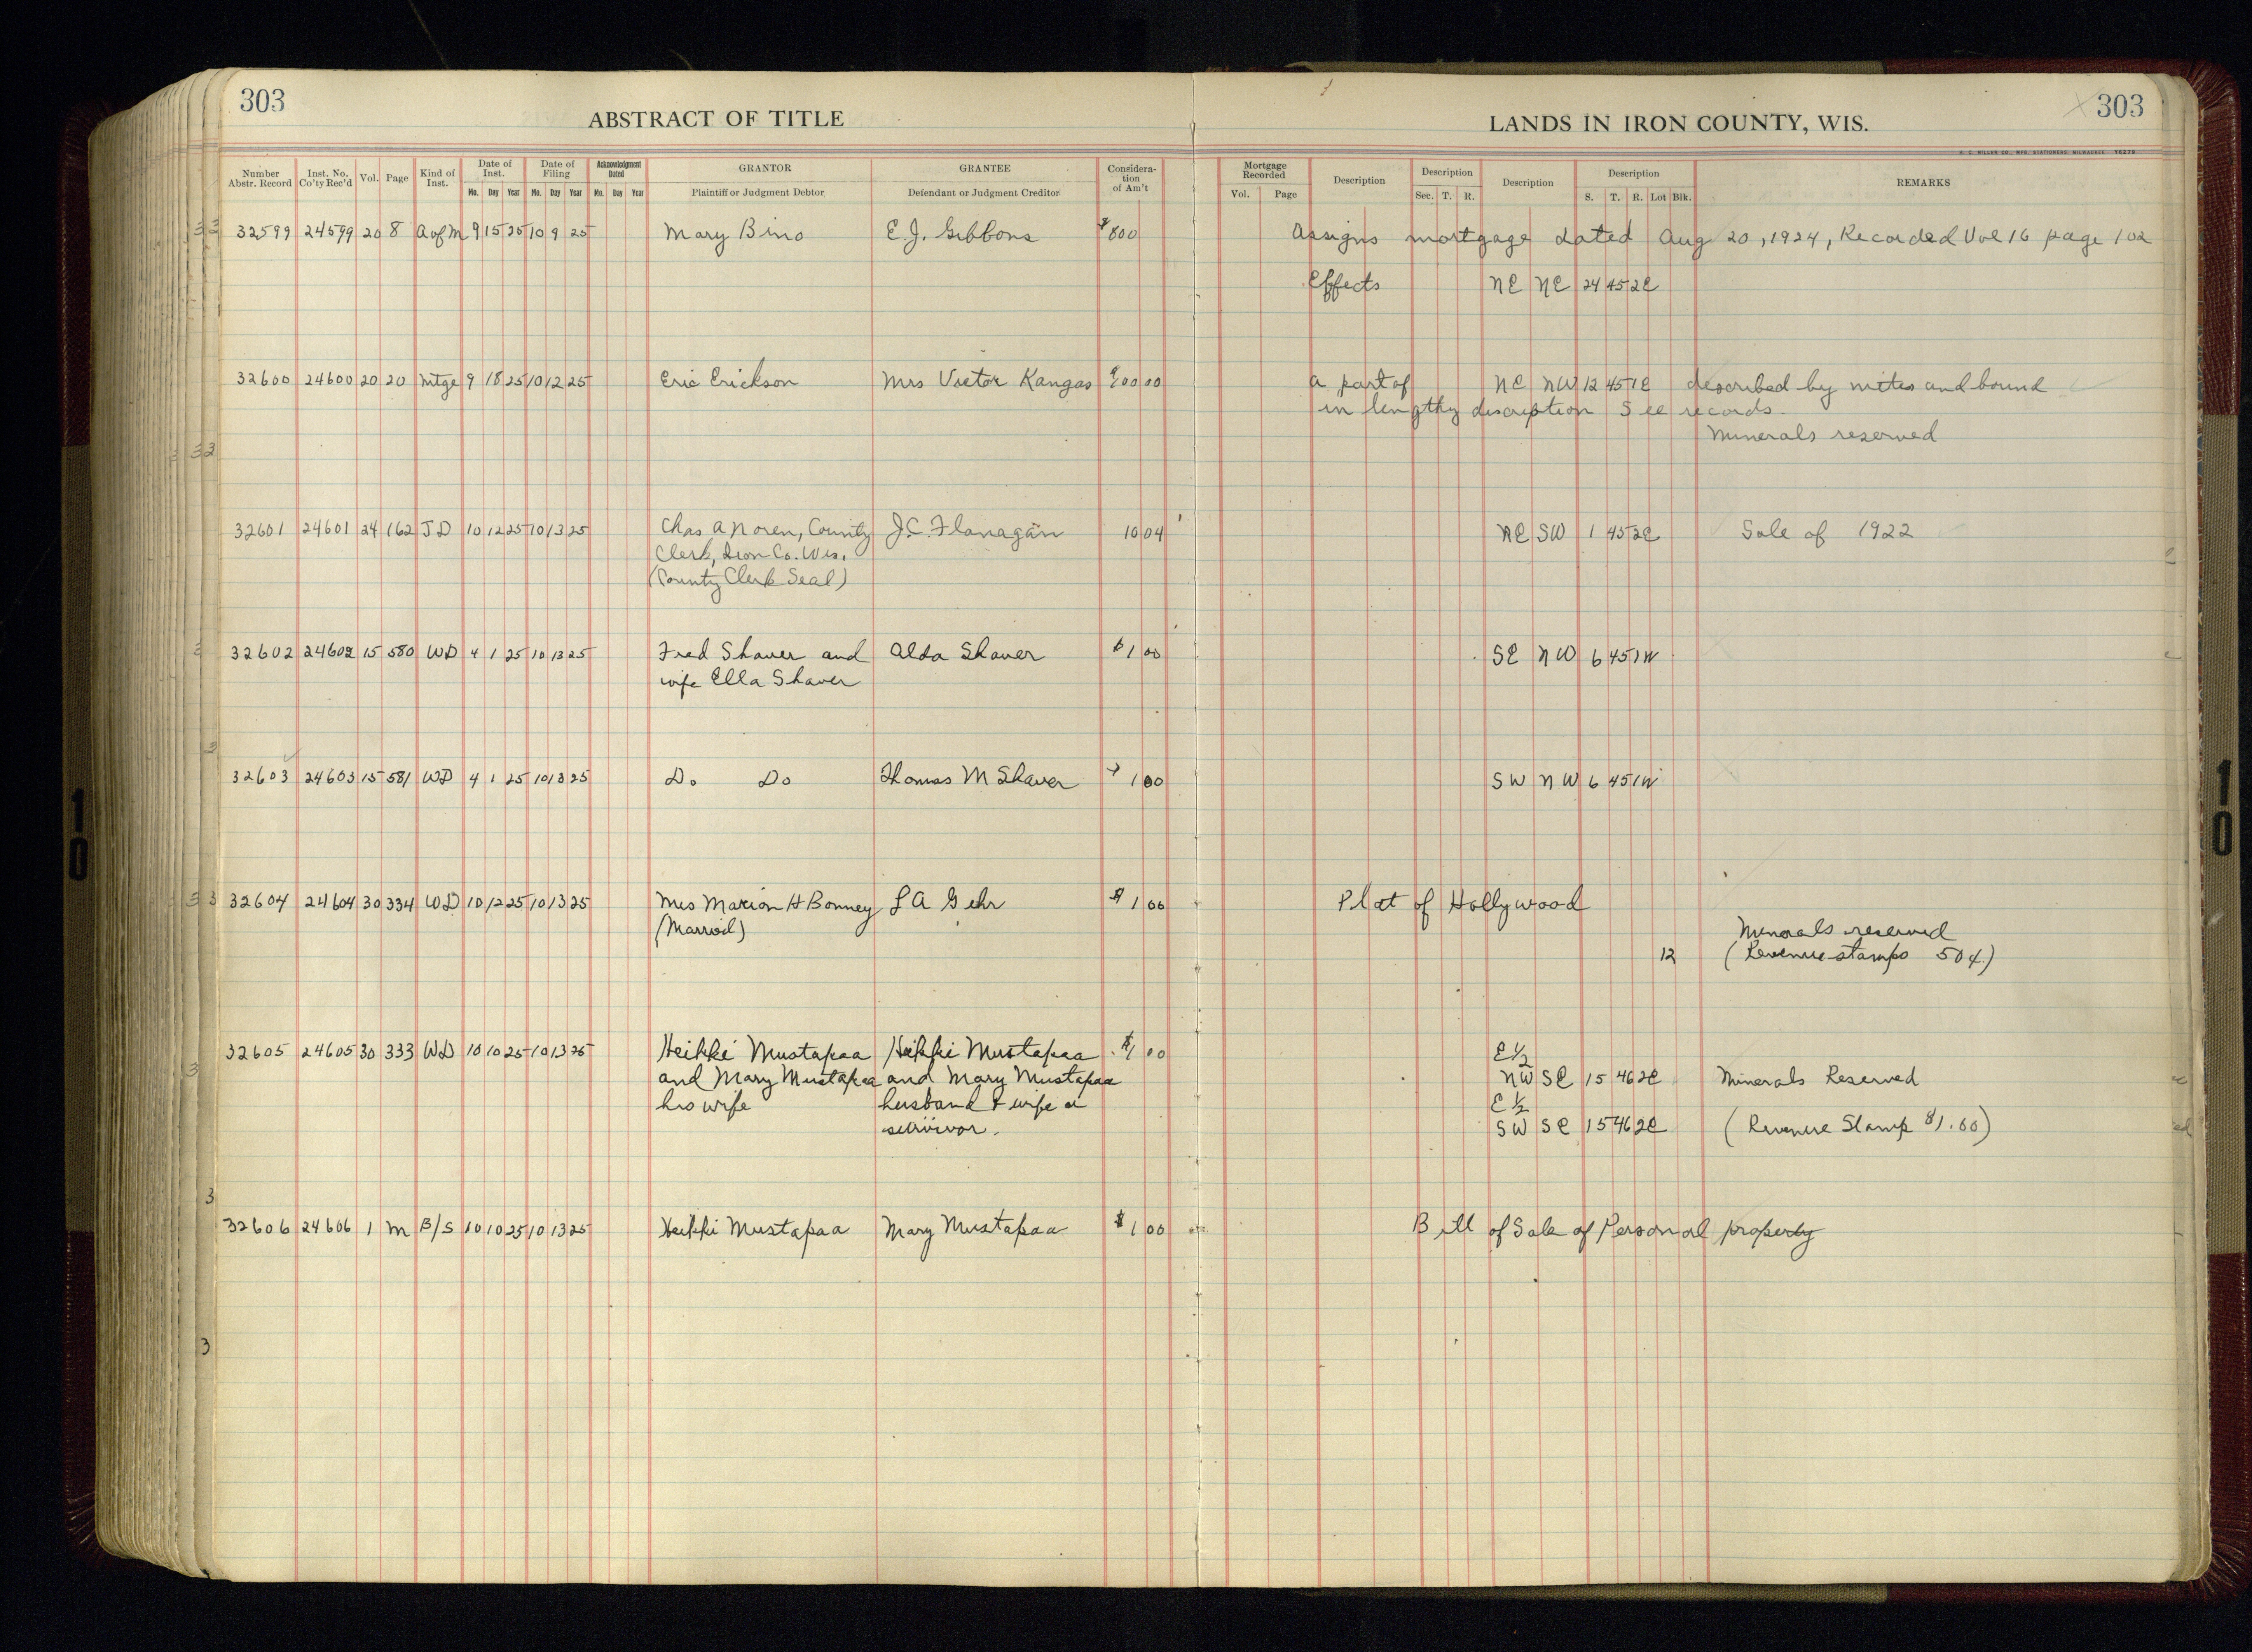 303
ABSTRACT OF TITLE
LANDS IN IRON COUNTY, WIS.
303
Number Abstr. Record Inst. No. Co'ty Rec'd Vol. Page Kind of Inst. Date of Inst. Mo. Day Year Date of Filing Mo. Day Year Acknowledgment Dated Mo. Day Year GRANTOR Plaintiff or Judgment Debtor GRANTEE Defendant or Judgment Creditor Considera-tion of Am't Mortgage Recorded Vol. Page Description Description Sec. T. R. Description Description S. T. R. Lot Blk. REMARKS
32599 24599 20 8 A of M 9 15 25 10 9 25 Mary Bino E.J. Gibbons $800 Assigns mortgage dated Aug 20, 1924, Recorded Vol 16 page 102
Effects NE NE 24 45 2E
32600 24600 20 20 Mtge 9 18 25 10 12 25 Eric Erickson Mrs Victor Kangas 00 00 a part of NE NW 12 45 1E described by mites and bound
in lengthy discription See records.
Minerals reserved
32601 24601 24 162 J D 10 12 25 10 13 25 Chas A Noren, County J.C. Flanagan 10 04 NE SW 1 45 2E Sale of 1922
Clerk, Iron Co. Wis.
(County Clerk Seal)
32602 24602 15 580 WD 4 1 25 10 13 25 Fred Shaver and Alda Shaver $1 00 SE NW 6 45 1W
wife Ella Shaver
32603 24603 15 581 WD 4 1 25 10 13 25 Do Do Thomas M Shaver 1 00 SW NW 6 45 1W
32604 24604 30 334 WD 10 12 25 10 13 25 Mrs Marion H Bonney L A Gehr $1 00 Plat of Hollywood
(Married) Minerals reserved
12 (Revenue stamps 50¢)
32605 24605 30 333 WD 10 10 25 10 13 25 Heikki Mustapaa Heikki Mustapaa $1 00 E½
and Mary Mustapaa and Mary Mustapaa NW SE 15 46 2E Minerals Reserved
his wife husband & wife a E½
survivor. SW SE 15 46 2E (Revenue Stamp $1.00)
32606 24606 1 M B/S 10 10 25 10 13 25 Heikki Mustapaa Mary Mustapaa $1 00 Bill of Sale of Personal property